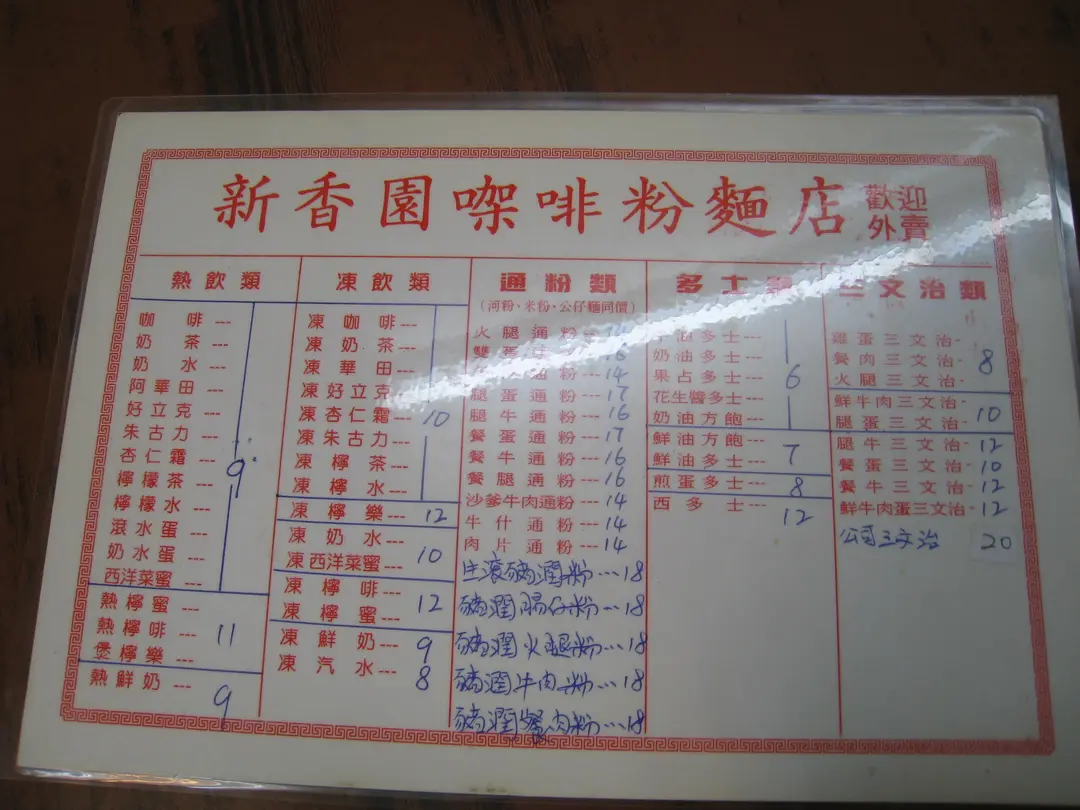 新香園㗎啡粉麵店
歡迎
外賣
熱飲類
咖啡---
奶茶---
奶水---
阿華田---
好立克---
朱古力---
杏仁霜---
9
檸檬茶---
檸檬水---
滾水蛋---
奶水蛋---
西洋菜蜜---
熱檸蜜---
熱檸啡---
11
煲檸樂---
熱鮮奶---
9
凍飲類
凍咖啡---
凍奶茶---
凍華田---
凍好立克---
凍杏仁霜---10
凍朱古力---
凍檸茶---
凍檸水---
凍檸樂---12
凍奶水---
10
凍西洋菜蜜---
凍檸啡---
12
凍檸蜜---
凍鮮奶---9
凍汽水---8
通粉類
(河粉、米粉、公仔麵同價)
火腿通粉
通粉---14
腿蛋通粉---17
腿牛通粉---16
餐蛋通粉---17
餐牛通粉---16
餐腿通粉---16
沙爹牛肉通粉---14
牛什通粉---14
肉片通粉---14
生滾豬潤粉---18
豬潤腸仔粉---18
豬潤火腿粉---18
豬潤牛肉粉---18
豬潤餐肉粉---18
多士
多士---
奶油多士---
果占多士---
6
花生醬多士---
奶油方飽---
鮮油方飽---
7
鮮油多士---
煎蛋多士---8
西多士---12
三文治類
雞蛋三文治-
餐肉三文治-
8
火腿三文治-
鮮牛肉三文治-
10
腿蛋三文治-
腿牛三文治-12
餐蛋三文治-10
餐牛三文治-12
鮮牛肉蛋三文治-12
公司三文治 20